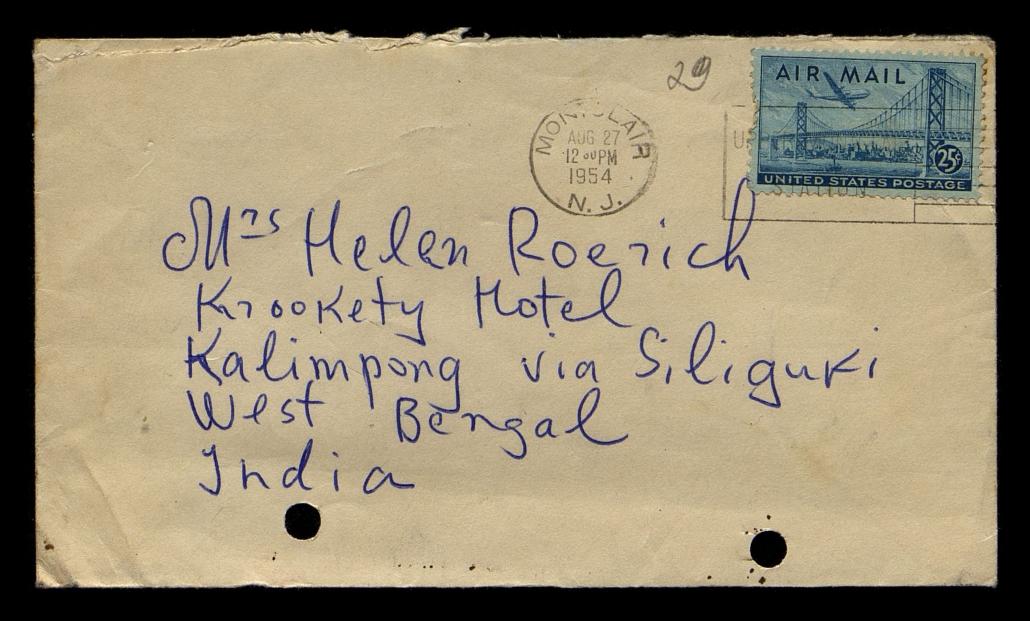 29
AIR MAIL
25¢
UNITED STATES POSTAGE
MONTCLAIR
AUG 27
12 00 PM
1954
N. J.
STATION
Mrs Helen Roerich
Krookety Hotel
Kalimpong via Siliguri
West Bengal
India